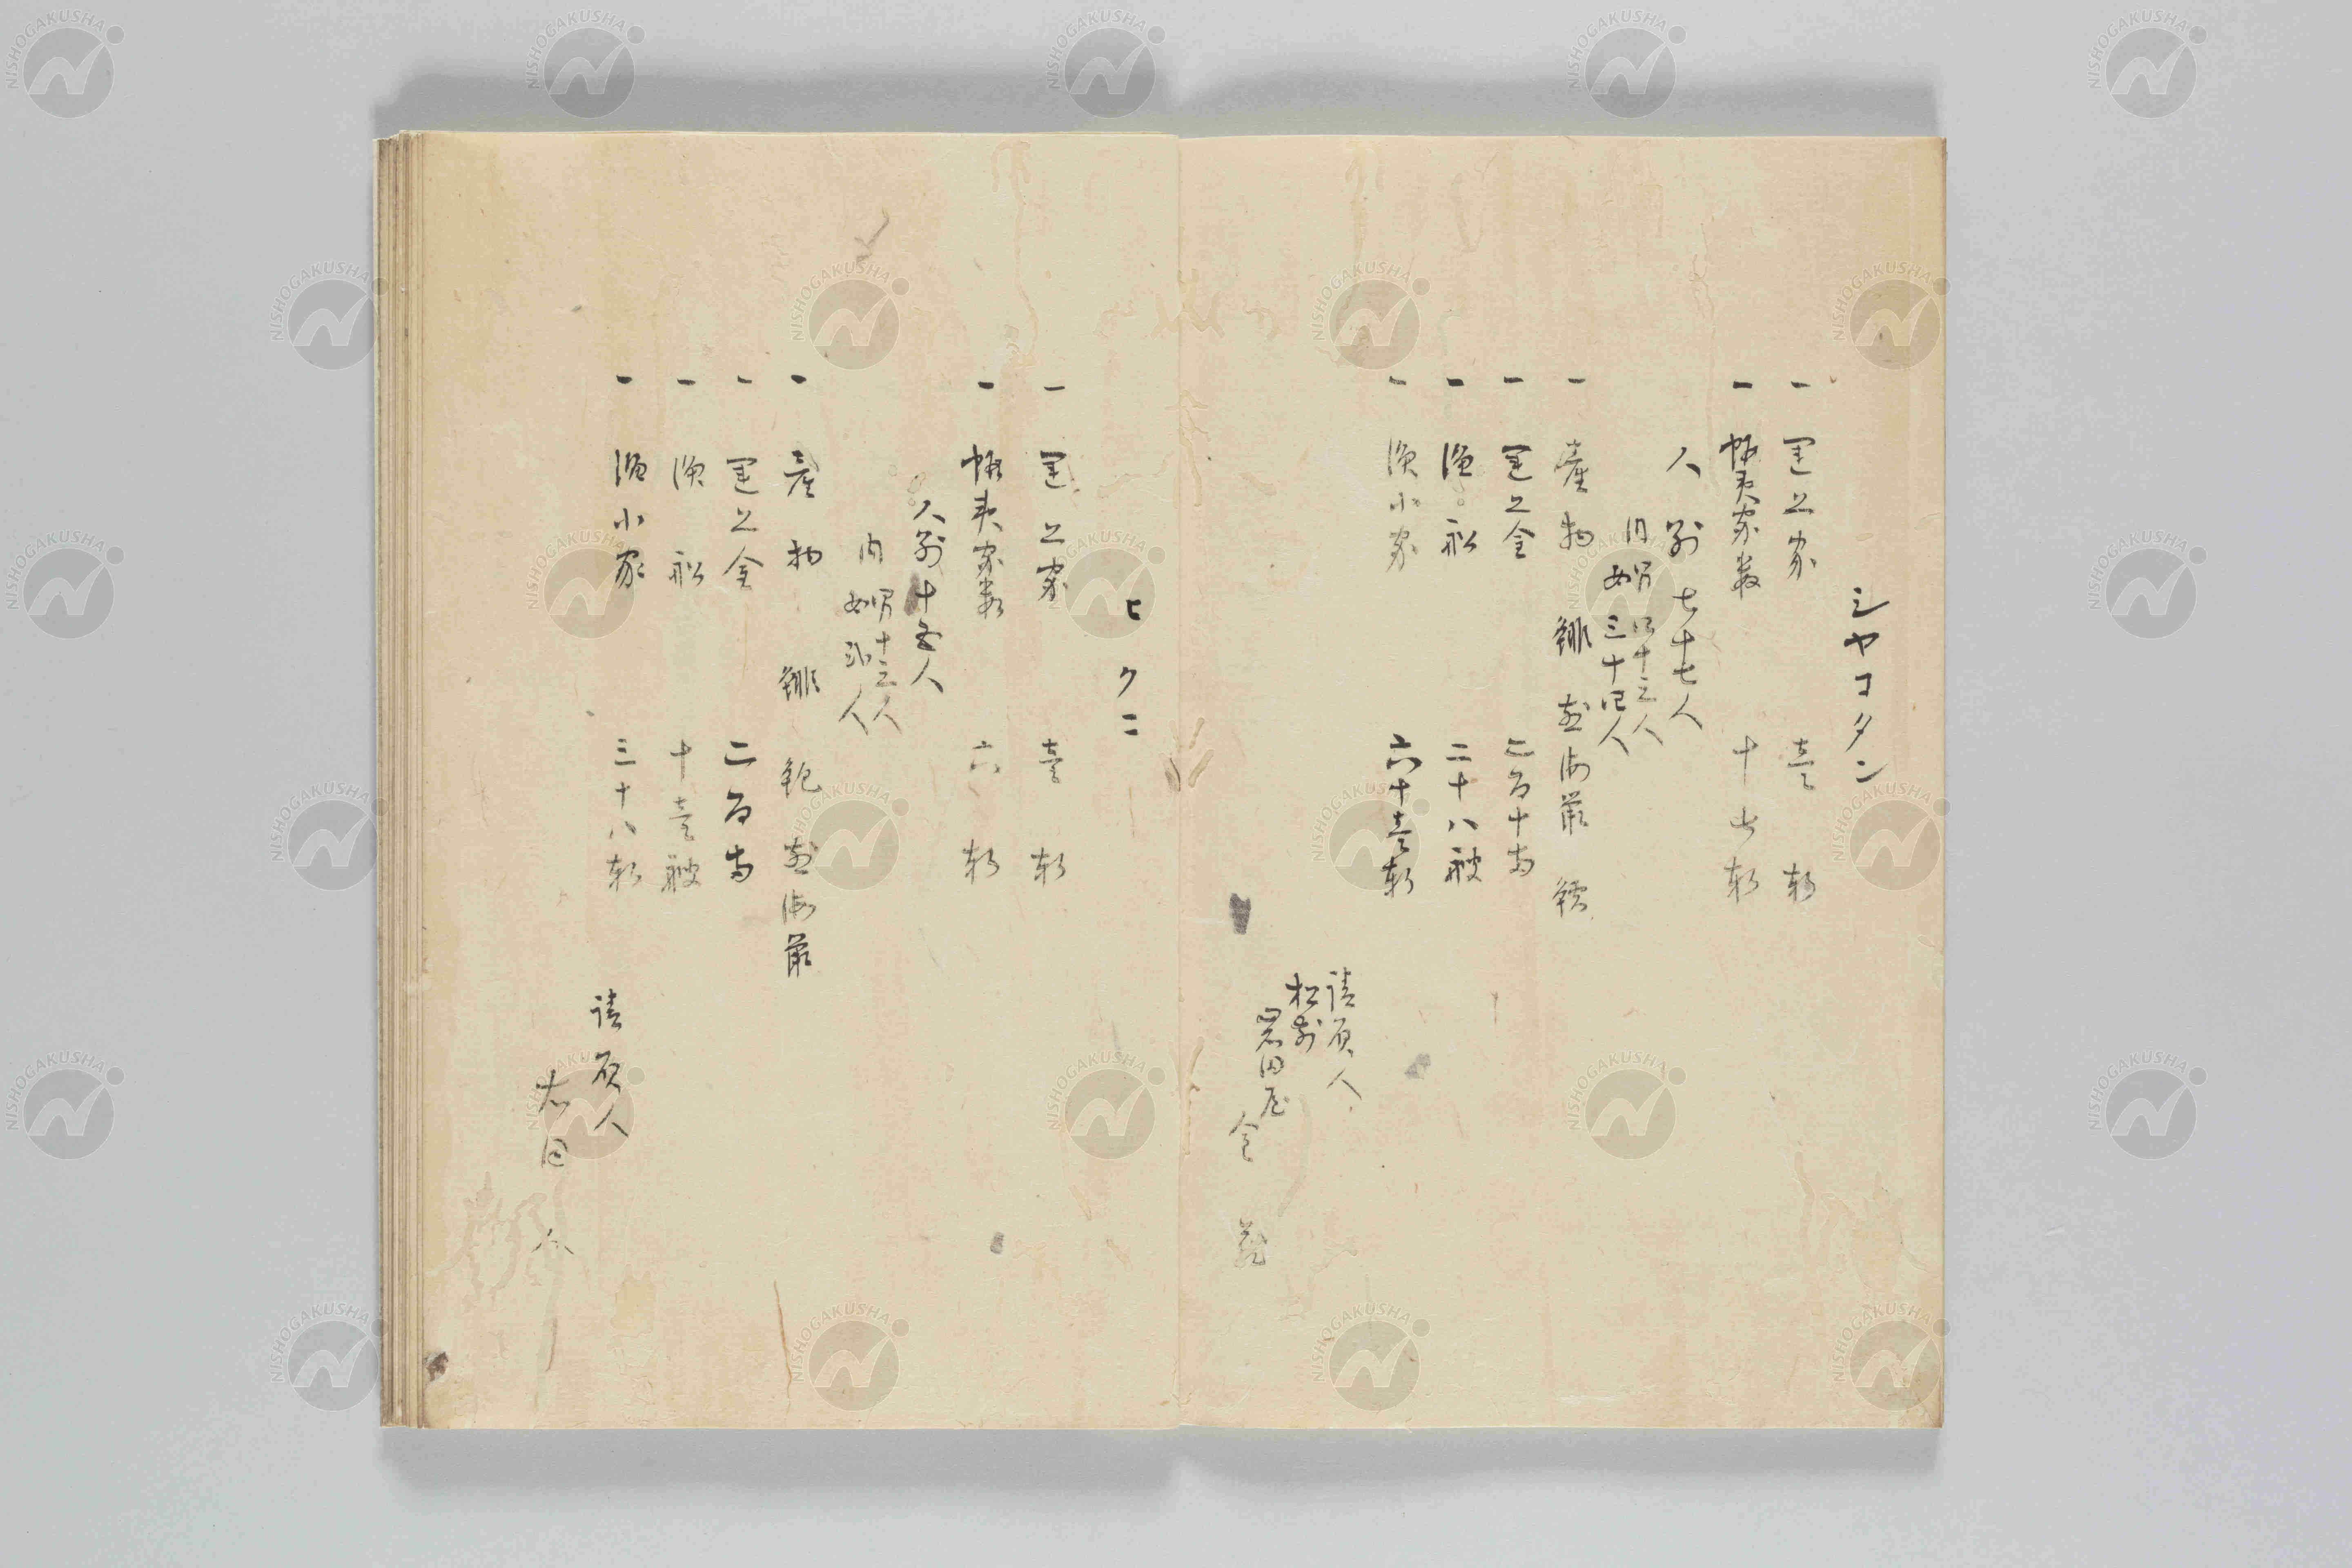 シヤコタン
一 運上家 壹軒
一 蝦夷家数 十七軒
人別七十七人
内 男四十三人
女三十四人
一 産物 鯡 煎海鼠 鱈
一 運上金 二百十両
一 漁船 二十八艘
一 漁小家 六十壹軒
請負人
松前
岩田屋金蔵
ヒクニ
一 運上家 壹軒
一 蝦夷家数 六軒
人別十五人
内 男十三人
女弐人
一 産物 鯡 鮑 煎海鼠
一 運上金 二百両
一 漁船 十壹艘
一 漁小家 三十八軒
請負人
右同人
NISHOGAKUSHA